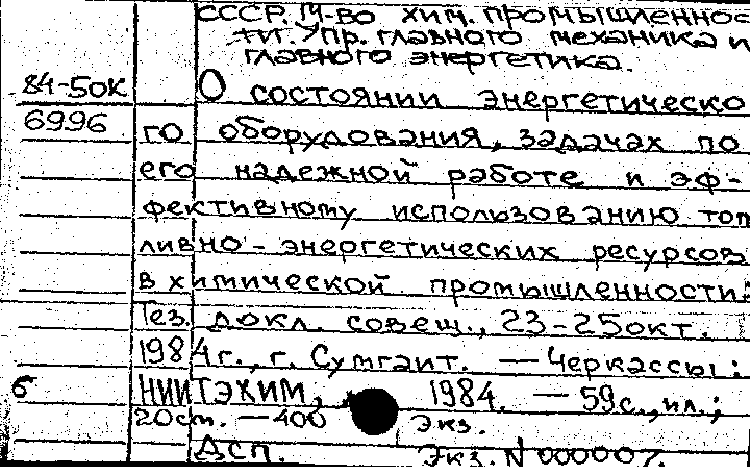 СССР. М-во хим. промышленнос
ти. Упр. главного механика и
главного энергетика.
84-50К
О состоянии энергетическо
6996
го оборудования, задачах по
его надежной работе и эф-
фективному использованию топ
ливно-энергетических ресурсов
в химической промышленности:
Тез. докл. совещ., 23-25 окт.
1984 г., г. Сумгаит. — Черкассы:
б
НИИТЭХИМ, 1984. — 59 с., ил.;
20 см. — 400 экз.
ДСП. Экз. N 000007.